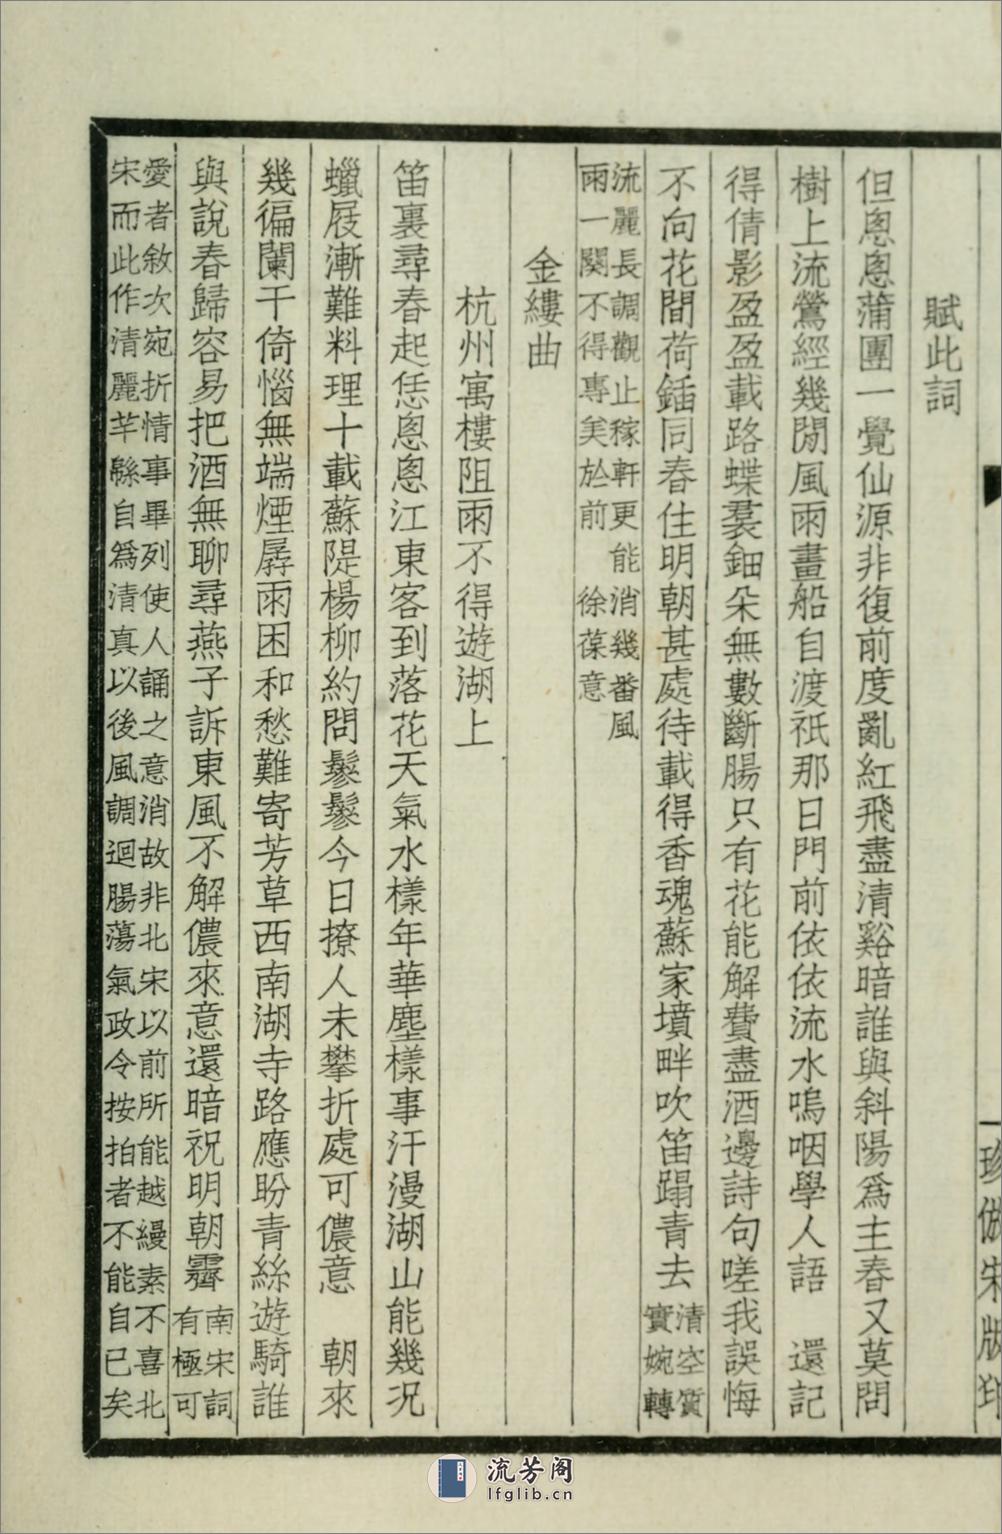 賦此詞
但悤悤蒲團一覺仙源非復前度亂紅飛盡清谿暗誰與斜陽爲主春又莫問
樹上流鶯經幾閒風雨畫船自渡祇那日門前依依流水嗚咽學人語　還記
得倩影盈盈載路蝶裠鈿朵無數斷腸只有花能解費盡酒邊詩句嗟我誤悔
不向花間荷鍤同春住明朝甚處待載得香魂蘇家墳畔吹笛蹋青去
清空質
實婉轉
流麗長調觀止稼軒更能消幾番風
雨一闋不得專美於前　徐葆意
金縷曲
杭州寓樓阻雨不得遊湖上
笛裏尋春起恁悤悤江東客到落花天氣水樣年華塵樣事汗漫湖山能幾況
蠟屐漸難料理十載蘇隄楊柳約問鬖鬖今日撩人未攀折處可儂意　朝來
幾徧闌干倚惱無端煙孱雨困和愁難寄芳草西南湖寺路應盼青絲遊騎誰
與說春歸容易把酒無聊尋燕子訴東風不解儂來意還暗祝明朝霽
南宋詞
有極可
愛者敘次宛折情事畢列使人誦之意消故非北宋以前所能越縵素不喜北
宋而此作清麗芊緜自爲清真以後風調迴腸蕩氣政令按拍者不能自已矣
珍倣宋版印
流芳阁
lfglib.cn